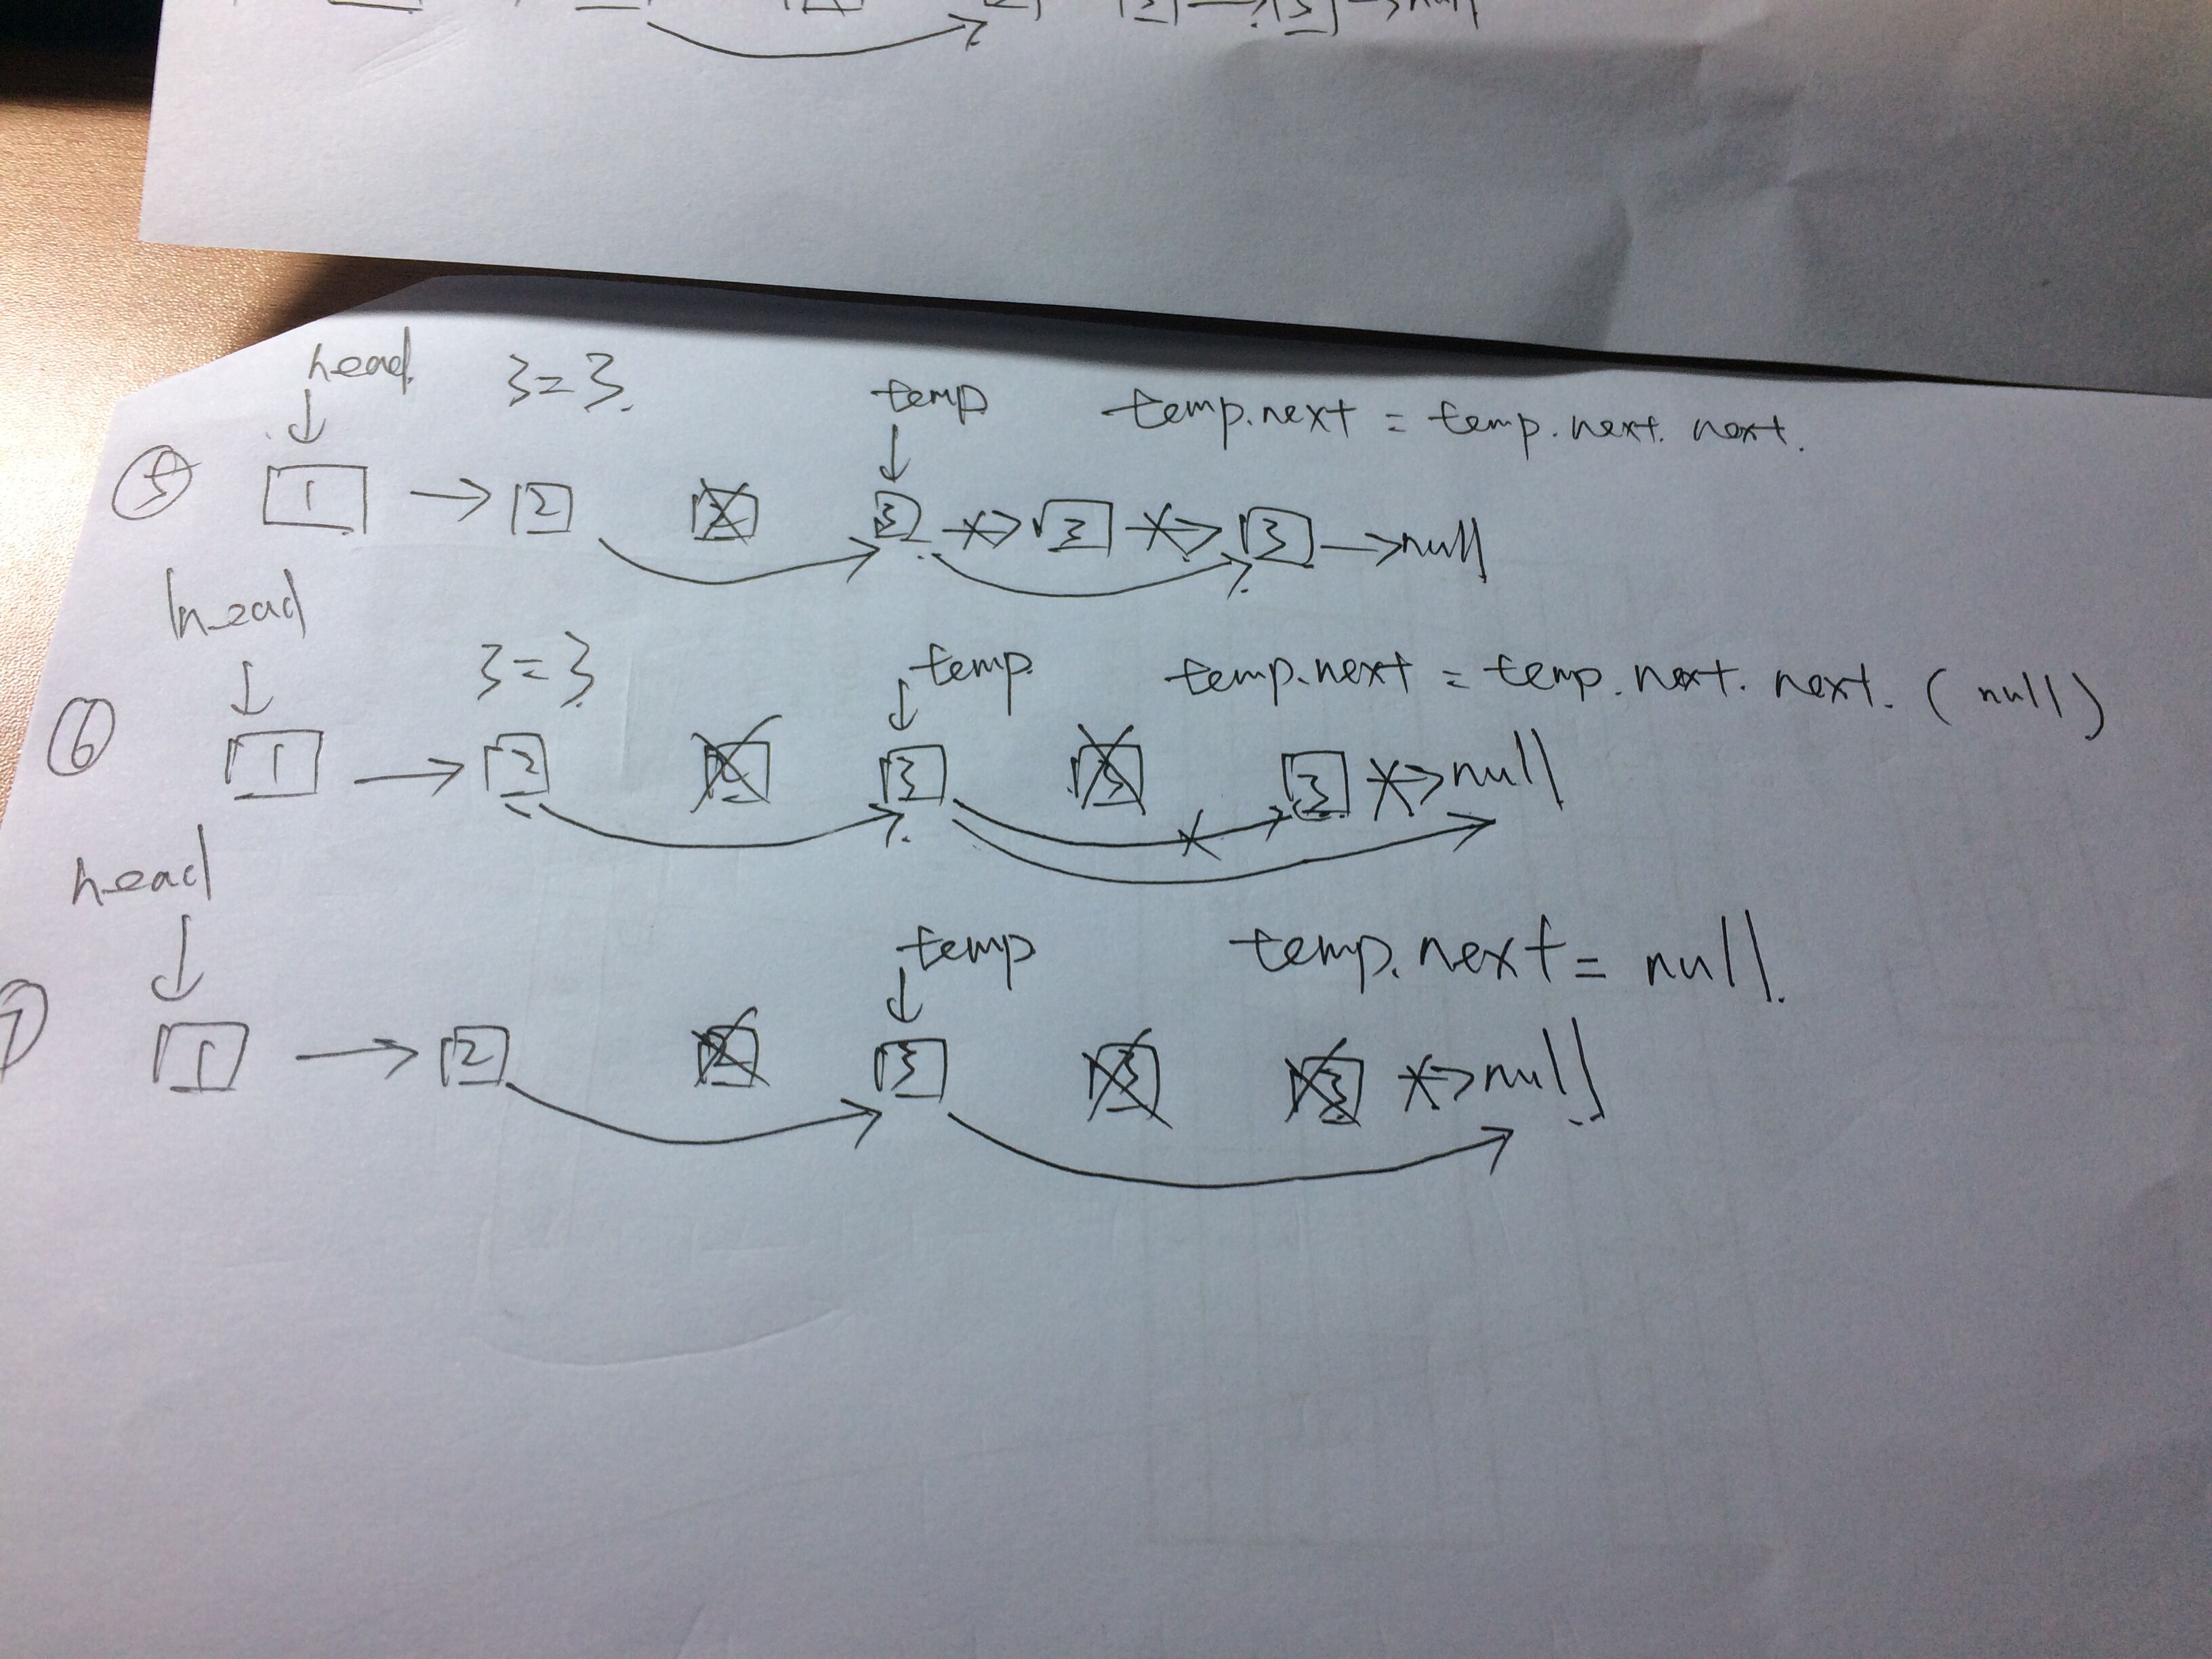 2 → 3 → null
head 3=3. temp temp.next = temp.next.next.
⑤ 1 → 2 2 3 → 3 → 3 → null
head 3=3 temp. temp.next = temp.next.next. (null)
⑥ 1 → 2 3 3 3 → null
head temp temp.next = null.
⑦ 1 → 2 2 3 3 3 → null